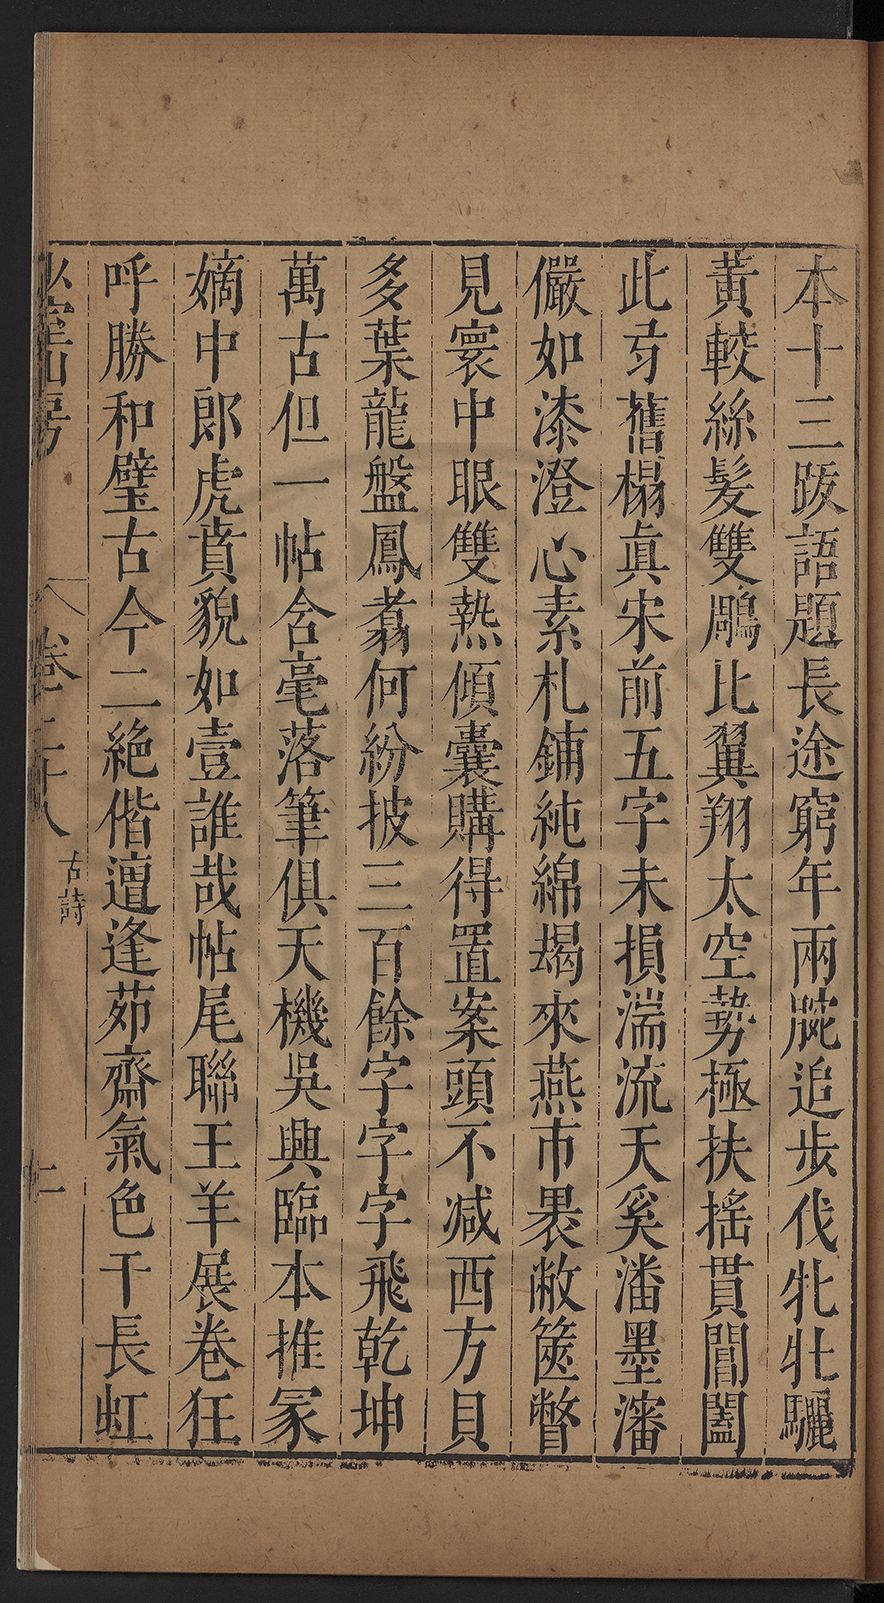 本十三跋語題長途窮年兩㲋追步伐牝牡驪
黃較絲髮雙鵰比翼翔太空勢極扶搖貫閶闔
此夛舊榻真宋前五字未損湍流天奚潘墨瀋
儼如漆澄心素札鋪純綿朅來燕市褁敝篋瞥
見寰中眼雙熱傾囊購得置案頭不減西方貝
多葉龍盤鳳翥何紛披三百餘字字字飛乾坤
萬古但一帖含毫落筆俱天機吳興臨本推冢
嫡中郎虎賁貌如壹誰哉帖尾聯王羊展卷狂
呼勝和璧古今二絕偕邅逢茆齋氣色干長虹
山房
卷二十八
古詩
二